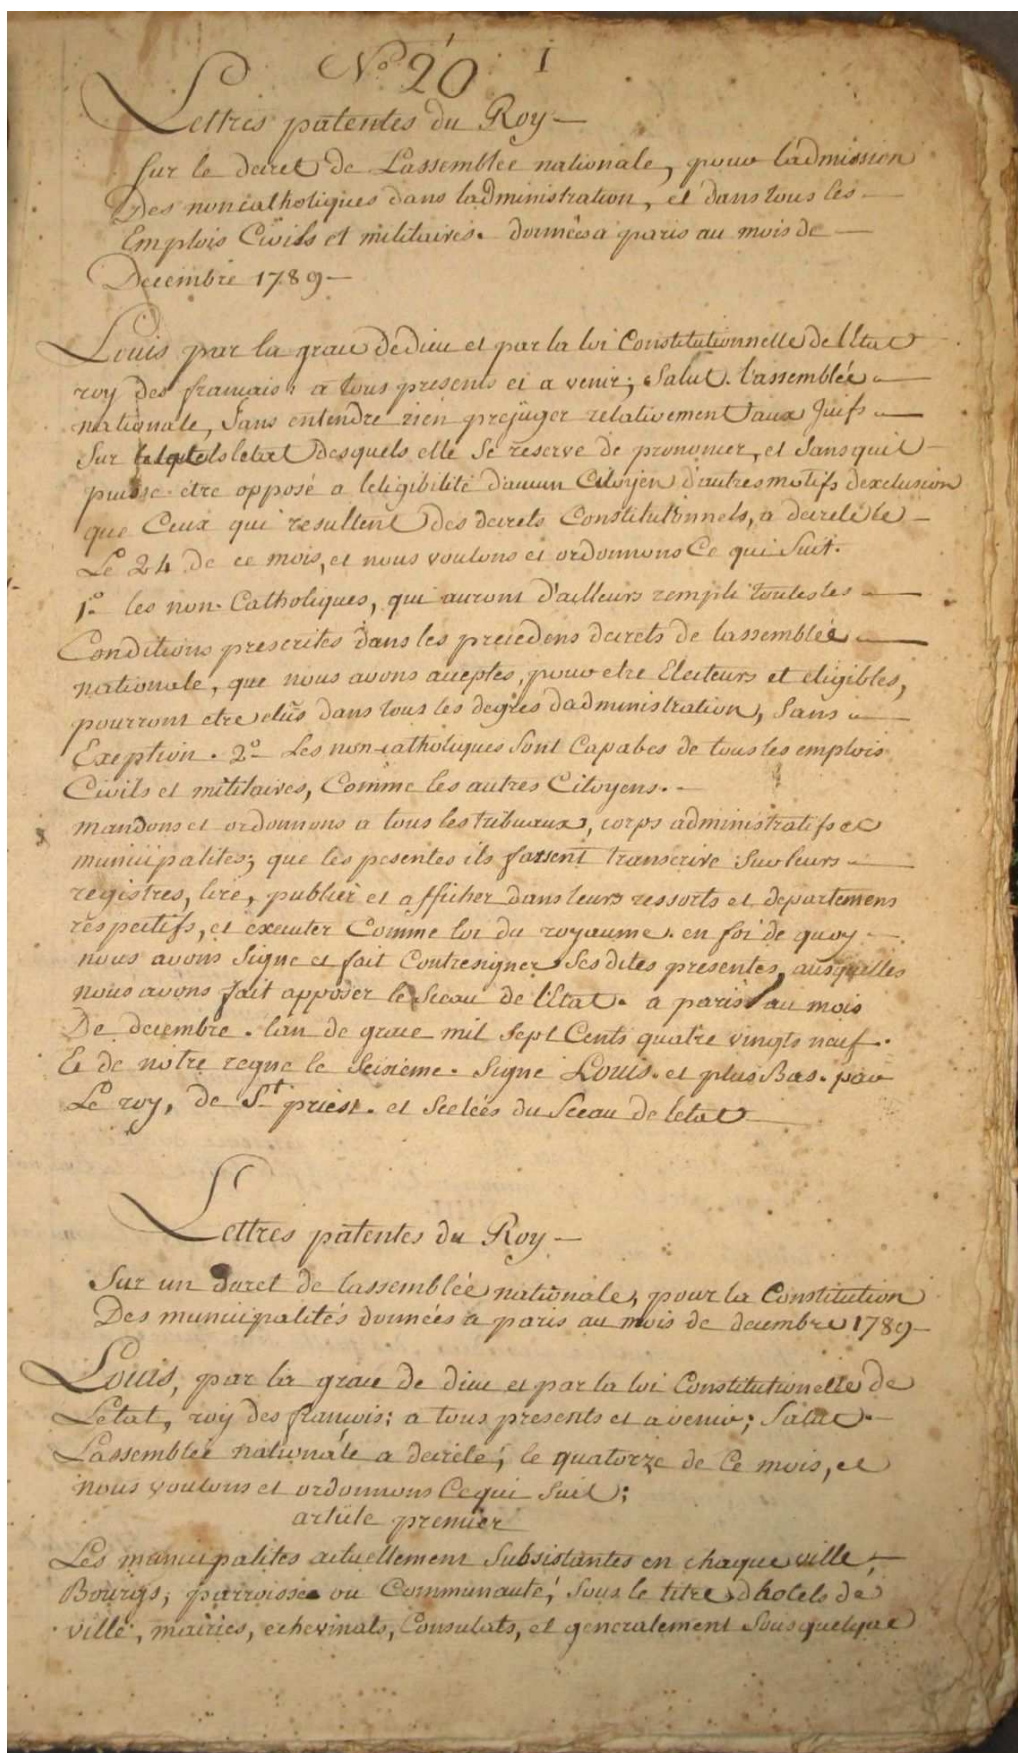 N.º 20 I
Lettres patentes du Roy —
sur le decret de Lassemblée nationale, pour ladmission
Des noncatholiques dans ladministration, et dans tous les —
Emplois Civils et militaires. données a paris au mois de —
Decembre 1789 —
Louis par la grace de dieu et par la loi Constitutionnelle de l'Etat
roy des francais: a tous presents et a venir; Salut. l'assemblée —
nationale, sans entendre rien prejuger relativement aux Juifs —
Sur letat desquels elle se reserve de prononcer, et sans quil —
puisse etre opposé a leligibilité daucun Citoyen d'autres motifs dexclusion
que Ceux qui resultent des decrets Constitutionnels, a decrété le —
Le 24 de ce mois, et nous voulons et ordonnons Ce qui Suit.
1.º les non-Catholiques, qui auront d'ailleurs rempli toutes les —
Conditions prescrites dans les precedens decrets de lassemblée —
nationale, que nous avons acceptes, pour etre Electeurs et eligibles,
pourront etre elus dans tous les degres dadministration, Sans —
Exeption. 2.º Les non-catholiques sont Capabes de tous les emplois
Civils et militaires, Comme les autres Citoyens. -
mandons et ordonnons a tous les tribuaux, corps administratifs et
municipalites; que les pesentes ils fassent transcrire Sur leurs —
registres, lire, publier et afficher dans leurs ressorts et departemens
respectifs, et executer Comme loi du royaume. en foi de quoy —
nous avons Signe et fait Contresigner Ses dites presentes, ausquelles
nous avons fait apposer le Sceau de l'Etat. a paris au mois
De decembre. lan de grace mil Sept Cents quatre vingts neuf.
Et de notre regne le Seisieme. Signe Louis. et plus Bas. par
Le roy, de St priest. et Scelées du Sceau de letat —
Lettres patentes du Roy —
Sur un decret de lassemblée nationale, pour la Constitution
Des municipalités données a paris au mois de decembre 1789 —
Louis, par la grace de dieu et par la loi Constitutionelle de
Letat, roy des francois: a tous presents et a venir; Salut. —
Lassemblée nationale a decrété, le quatorze de Ce mois, et
nous voulons et ordonnons Ce qui Suit;
article premier
Les municipalites actuellement Subsistantes en chaque ville, —
Bourgs, parroisse ou Communauté, Sous le titre dhotels de
ville, mairies, echevinats, Consulats, et generalement Sous quelque